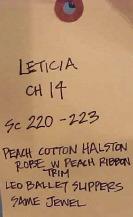 LETICIA
CH 14
SC 220-223
PEACH COTTON HALSTON
ROBE W PEACH RIBBON
TRIM
LEO BALLET SLIPPERS
SAME JEWEL